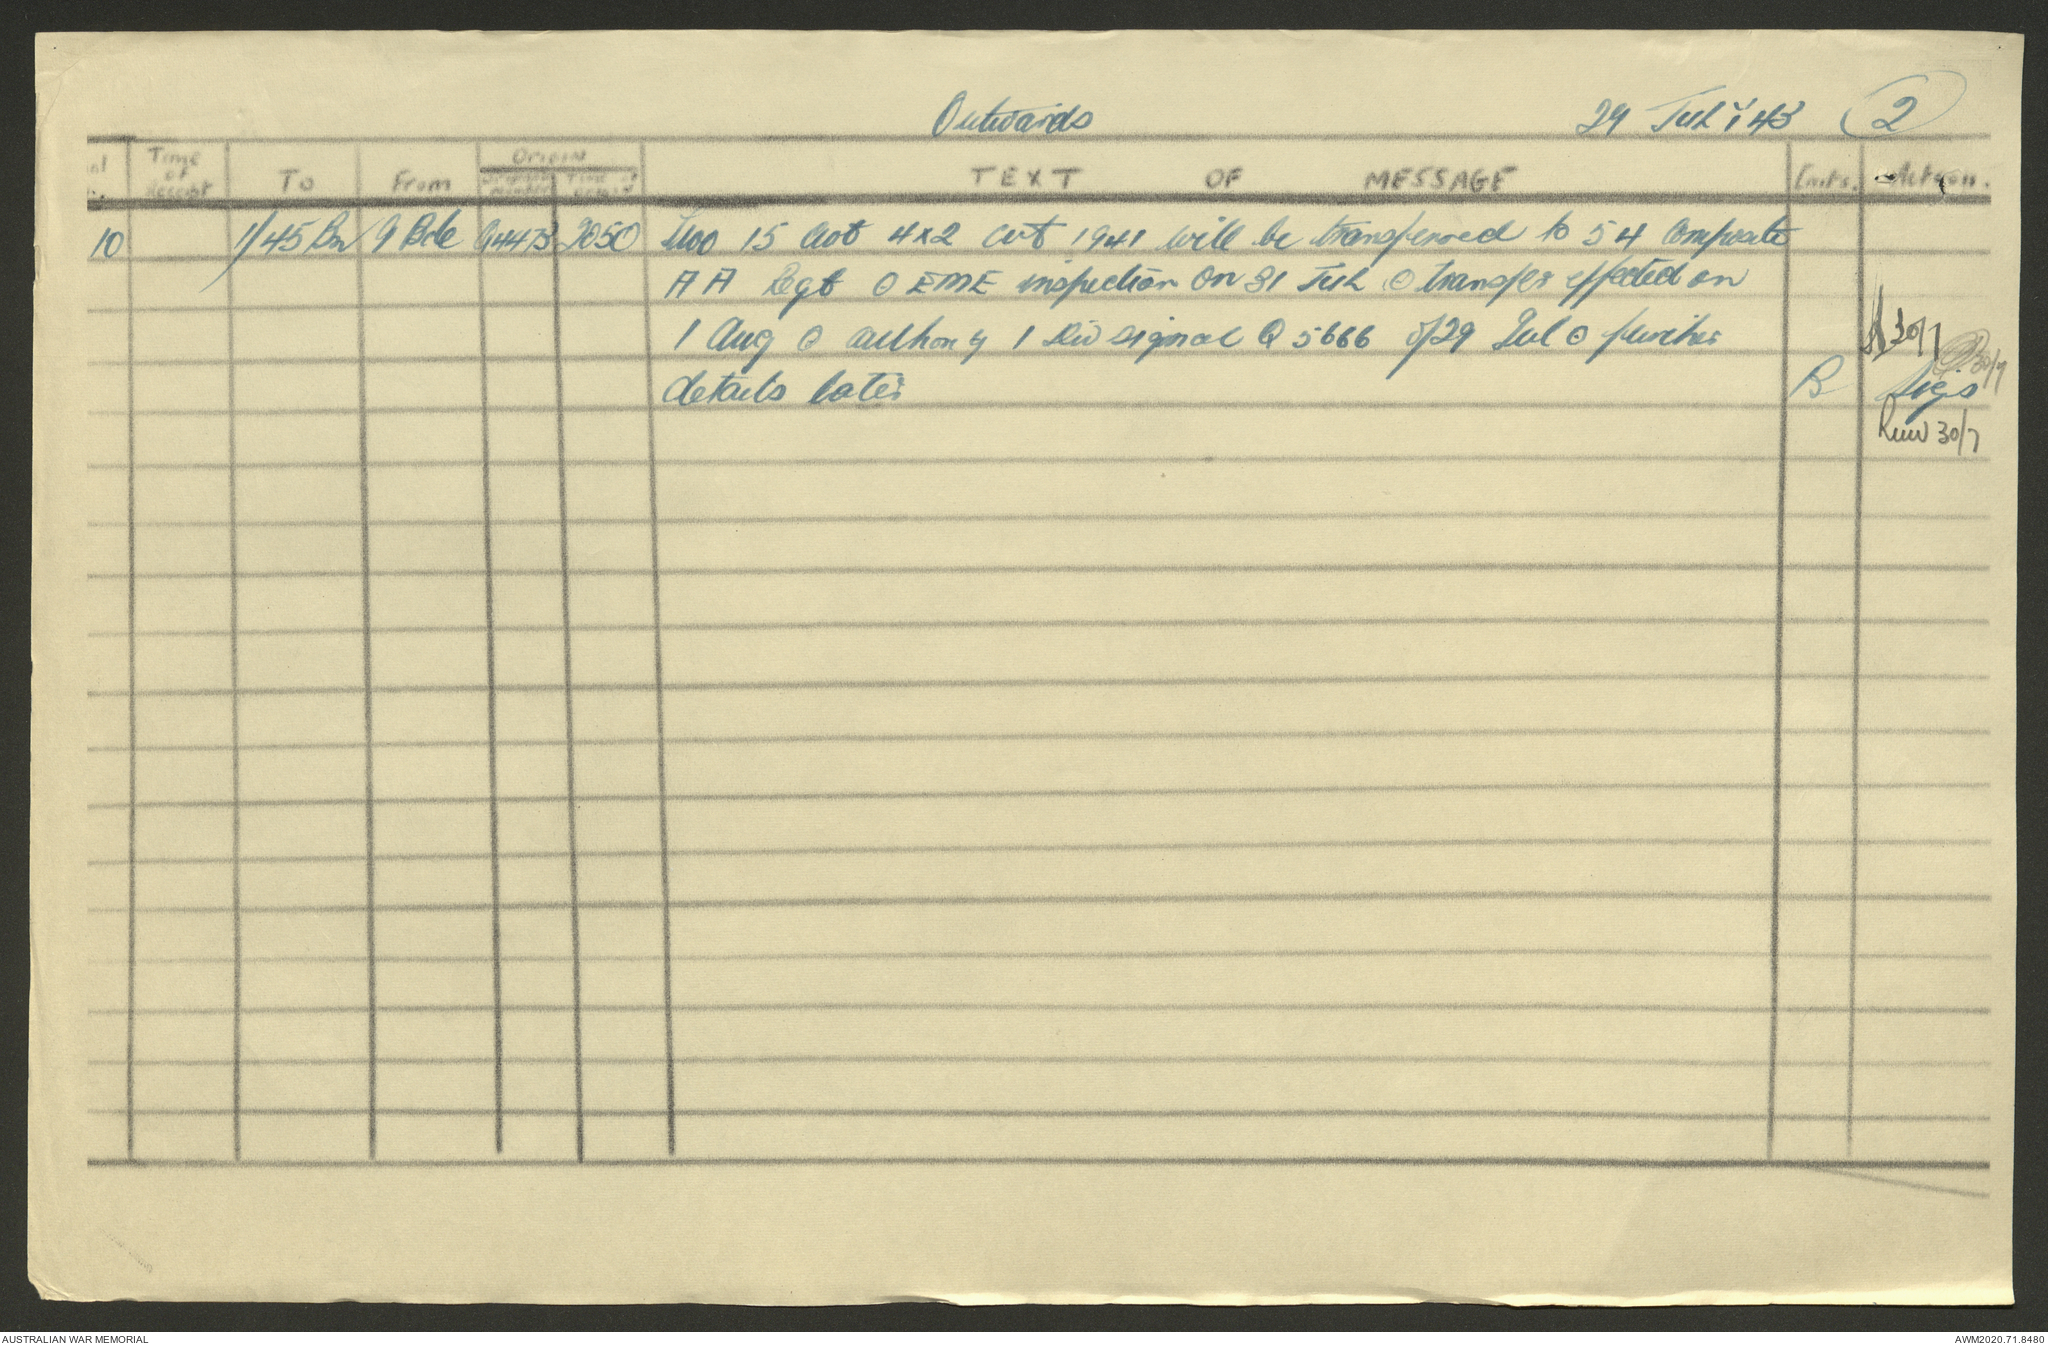 Outwards 29 July 43 2
Time of Receipt To From Origin TEXT OF MESSAGE Inits. Action.
10 1/45 Bn 9 Bde G4473 2050 Two 15 cwt 4x2 cvt 1941 will be transferred to 54 Composite
AA Regt ⊙ EME inspection on 31 Jul ⊙ transfer effected on
1 Aug ⊙ authority 1 Div signal Q 5666 of 29 Jul ⊙ further
30/7
30/7
details later B Sigs
30/7
AUSTRALIAN WAR MEMORIAL AWM2020.71.8480